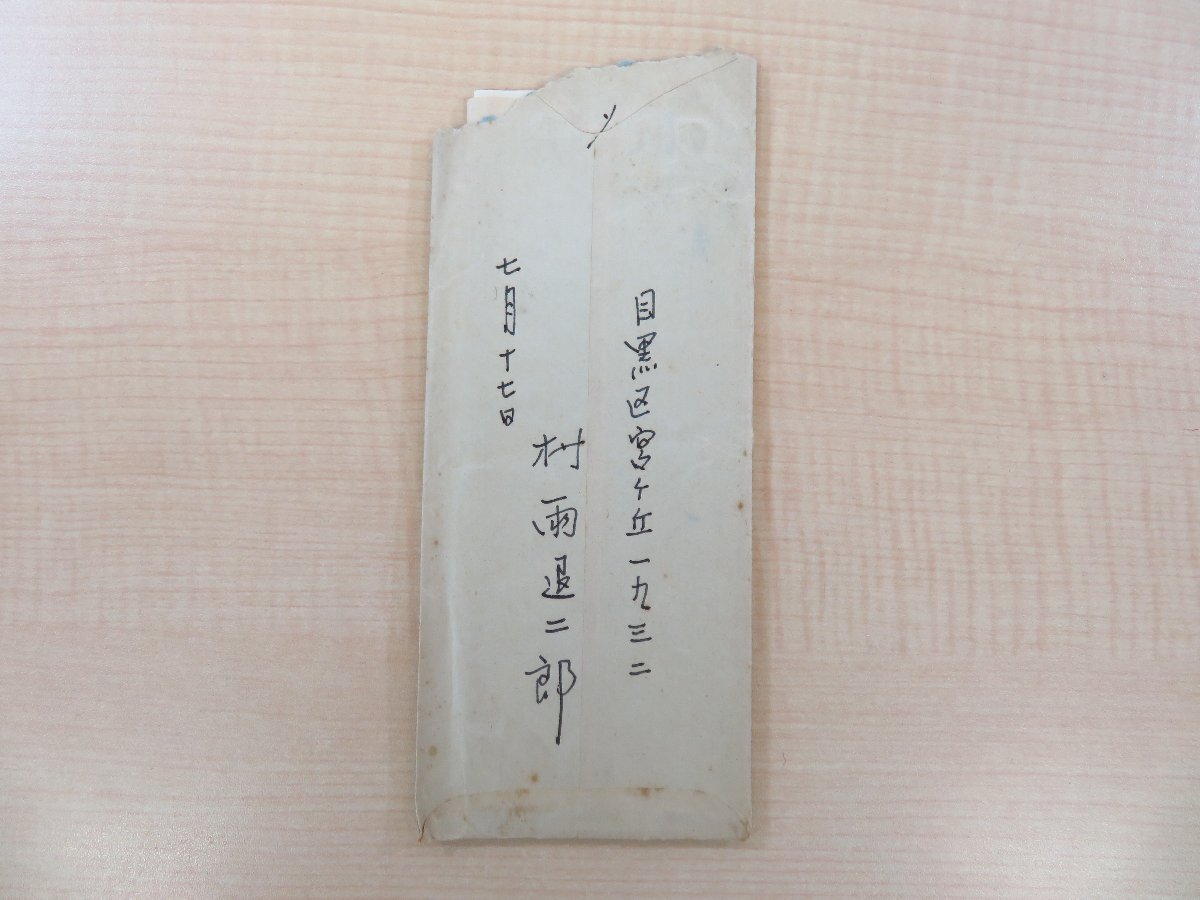 目黒区宮ヶ丘一九三二
村雨退二郎
七月十七日